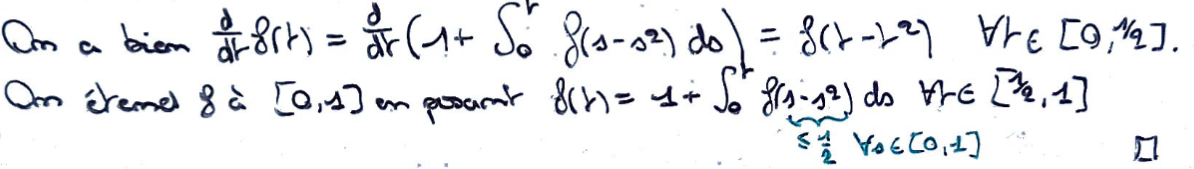 On a bien d/dt f(t) = d/dt (1 + ∫₀ᵗ f(s-s²) ds) = f(t-t²) ∀t ∈ [0, 1/2].
On étend f à [0,1] en posant f(t) = 1 + ∫₀ᵗ f(s-s²) ds ∀t ∈ [1/2, 1]
≤ 1/2 ∀s ∈ [0,1] □